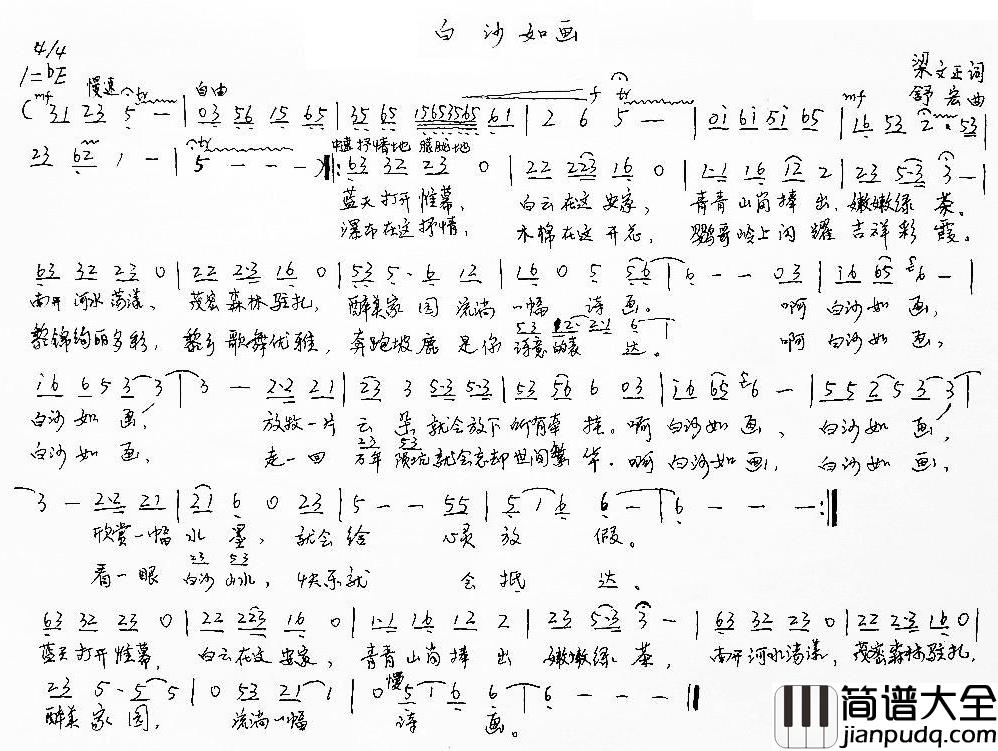 白沙如画
4/4
1=bE
梁文正词
舒宏曲
慢速 自由
mf f tr mf
(31 23 5 - | 03 56 15 65 | 35 65 15653565 61 | 2 6 5 - - | 0i 6i 5i 65 | 16 53 2 · 53
23 62 1 - | 5 - - - ) |: 63 32 23 0 | 22 223 16 0 | 1·1 16 12 2 | 23 5·3 3 - |
中速 抒情地 朦胧地
蓝天打开帷幕, 白云在这安家, 青青山岗捧出, 嫩嫩绿茶。
瀑布在这抒情, 木棉在这开花, 鹦哥岭上闪耀吉祥彩霞。
63 32 23 0 | 22 2·3 16 0 | 53 5·6 12 | 16 0 5 56 | 6 - - 03 | i6 65 6 - |
南开河水荡漾、 茂密森林驻扎, 醉美家园流淌一幅诗画。 啊 白沙如画,
53 12· 21 6
黎锦绚丽多彩, 黎乡歌舞优雅, 奔跑坡鹿是你诗意的表达。 啊 白沙如画,
i6 6 5 3 3 | 3 - 2·2 21 | 23 3 5·3 5·3 | 53 56 6 03 | i6 65 6 - | 5 5 2 5 3 3 |
白沙如画, 放牧一片云朵就会放下所有牵挂。啊 白沙如画, 白沙如画,
23 53
白沙如画, 走一回万年陨坑就会忘却世间繁华。啊 白沙如画, 白沙如画,
3 - 2·2 21 | 21 6 0 23 | 5 - - 55 | 5 1 6 6 - | 6 - - - :|
欣赏一幅水墨, 就会给心灵放假。
23 53
看一眼白沙山水, 快乐就会抵达。
63 32 23 0 | 22 223 16 0 | 1·1 16 12 2 | 23 5·3 3 - | 63 32 23 0 | 22 2·3 16 0 |
蓝天打开帷幕, 白云在这安家, 青青山岗捧出 嫩嫩绿茶, 南开河水荡漾, 茂密森林驻扎,
慢
23 5·5 5 | 0 53 21 1 | 1 0 5 1 6 6 | 6 - - - ||
醉美家园, 流淌一幅诗画。
简谱大全
jianpudq.com